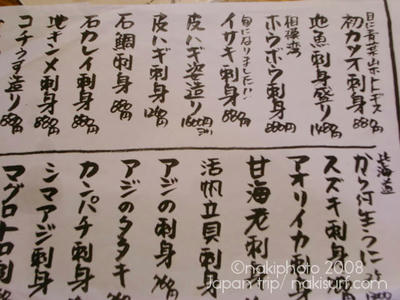 目に青葉山ホトトギス
初カツオ刺身 880円
地魚刺身盛り 1480円
相模湾
ホウボウ刺身 880円
旬になりました!!
イサキ刺身 880円
皮ハギ姿造り 1600円
皮ハギ刺身
石鯛刺身 880円
石カレイ刺身 880円
地キンメ刺身 880円
コチうす造り 880円
北海道
から付生うに
スズキ刺身
アオリイカ刺
甘海老刺
活帆立貝刺身
アジの刺身
アジのタタキ
カンパチ刺身
シマアジ刺身
マグロトロ刺
©nakiphoto 2008
Japan trip/ nakisurf.com